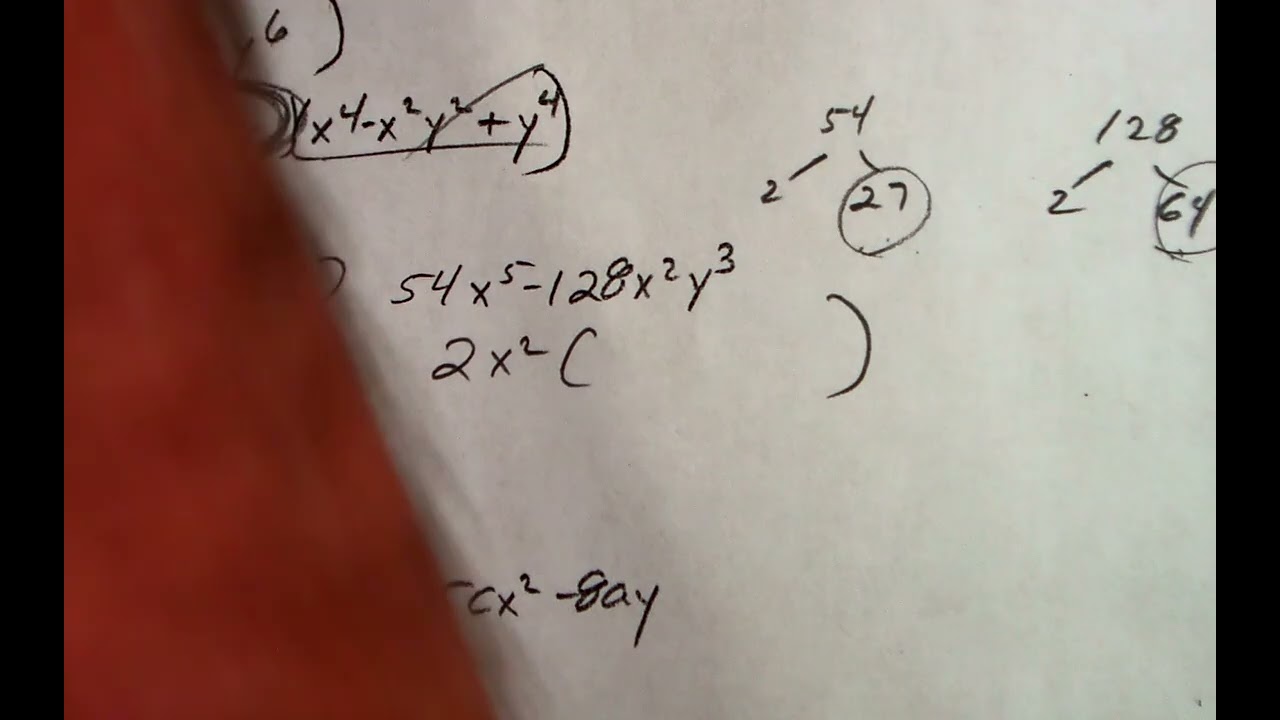 6 )
(x⁴-x²y²+y⁴)
54
2 27
128
2 64
) 54x⁵-128x²y³
2x² ( )
cx² -8ay